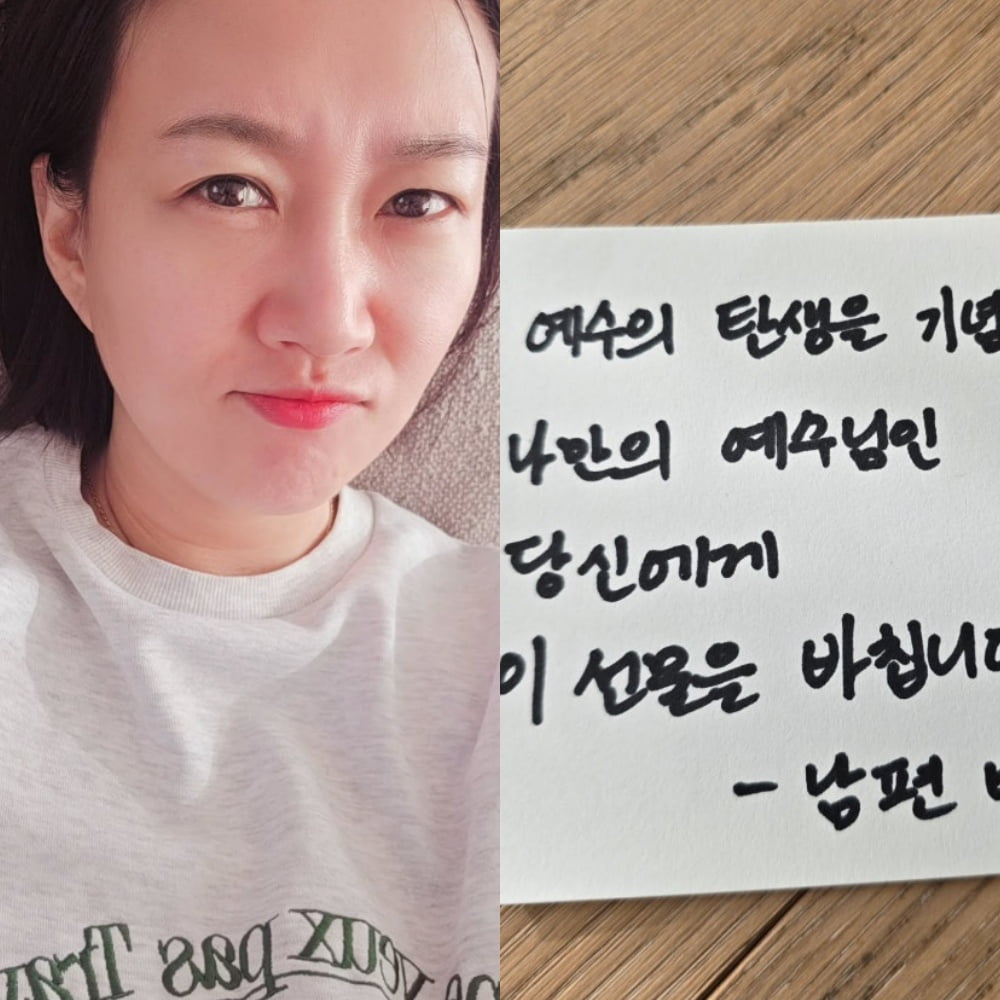 예수의 탄생을 기념
나만의 예수님인
당신에게
이 선물을 바칩니다
- 남편
veux pas Tra